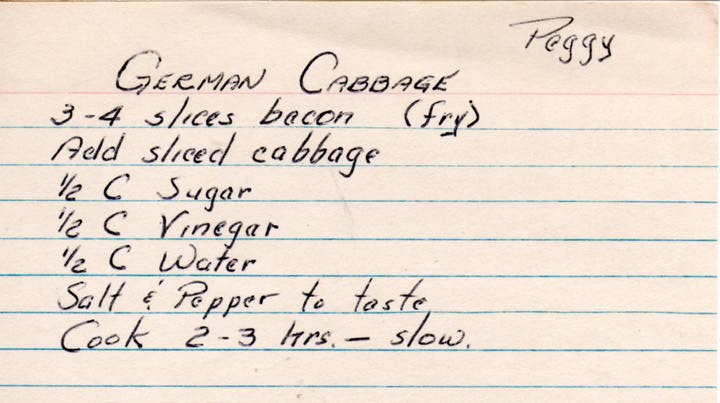 Peggy
German Cabbage
3-4 slices bacon (fry)
Add sliced cabbage
1/2 C Sugar
1/2 C Vinegar
1/2 C Water
Salt & Pepper to taste
Cook 2-3 hrs. — slow.